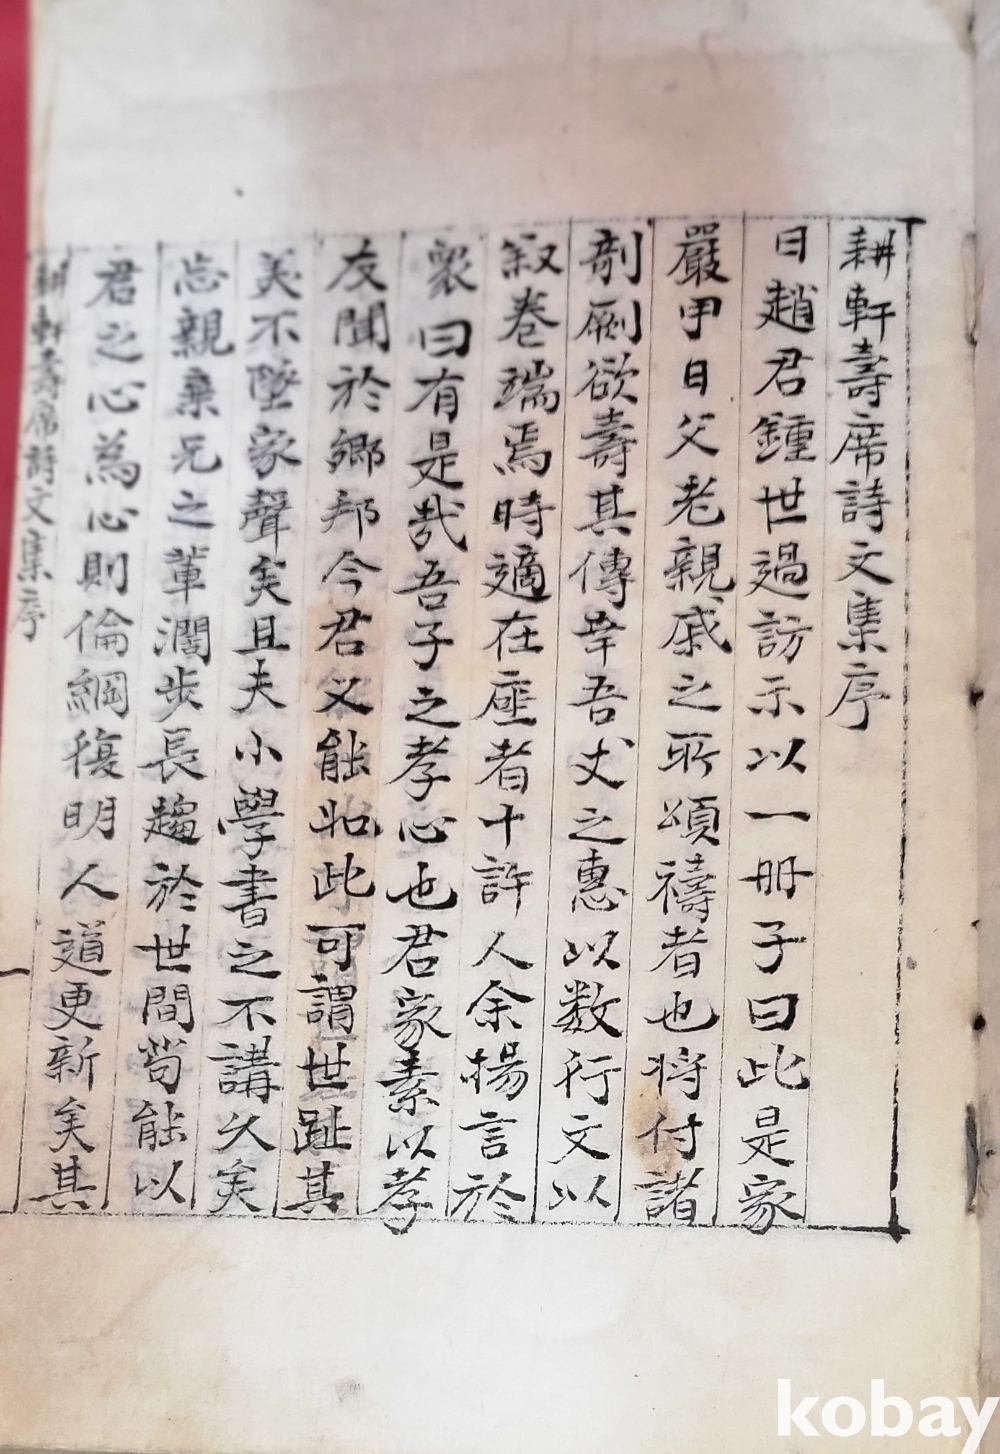 耕軒壽席詩文集序
日趙君鍾世過訪示以一冊子曰此是家
嚴甲日父老親戚之所頌禱者也將付諸
剞劂欲壽其傳幸吾丈之惠以数行文以
叙卷端焉時適在座者十許人余揚言於
衆曰有是哉吾子之孝心也君家素以孝
友聞於鄉邦今君又能如此可謂世趾其
美不墜家聲矣且夫小學書之不講久矣
忘親棄兄之輩濶步長趨於世間苟能以
君之心爲心則倫綱復明人道更新矣其
耕軒壽席詩文集序
一
kobay